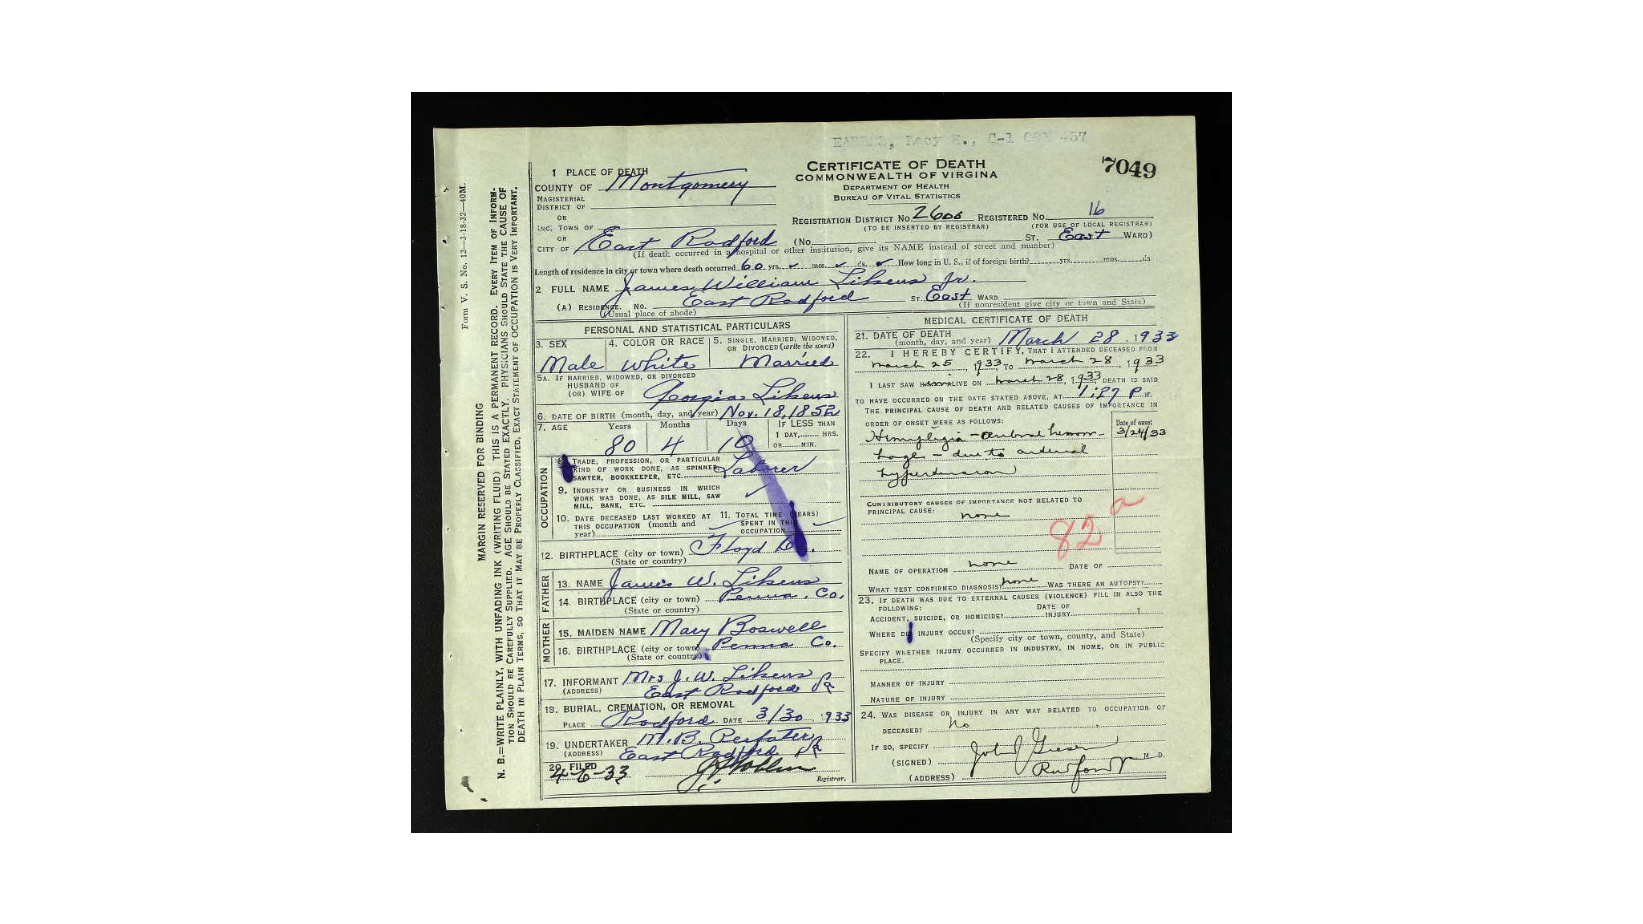 C-1
CERTIFICATE OF DEATH
COMMONWEALTH OF VIRGINIA
DEPARTMENT OF HEALTH
BUREAU OF VITAL STATISTICS
7049
1 PLACE OF DEATH
COUNTY OF Montgomery
MAGISTERIAL
DISTRICT OF
OR
INC. TOWN OF
OR
CITY OF East Radford
REGISTRATION DISTRICT No. REGISTERED No. 16
(TO BE INSERTED BY REGISTRAR) (FOR USE OF LOCAL REGISTRAR)
(No. ST. East WARD)
(If death occurred in a hospital or other institution, give its NAME instead of street and number)
Length of residence in city or town where death occurred 60 yrs. mos. ds. How long in U. S., if of foreign birth? yrs. mos. ds
2 FULL NAME James William Likens Jr.
(A) RESIDENCE. No. East Radford ST. East WARD
(Usual place of abode) (If nonresident give city or town and State)
PERSONAL AND STATISTICAL PARTICULARS
3. SEX
Male
4. COLOR OR RACE
White
5. SINGLE, MARRIED, WIDOWED,
OR DIVORCED (write the word)
Married
5A. IF MARRIED, WIDOWED, OR DIVORCED
HUSBAND OF
(OR) WIFE OF Georgia Likens
6. DATE OF BIRTH (month, day, and year) Nov. 18, 1852
7. AGE Years Months Days If LESS THAN
1 DAY, HRS.
OR MIN.
80 4 10
OCCUPATION
8. TRADE, PROFESSION, OR PARTICULAR
KIND OF WORK DONE, AS SPINNER,
SAWYER, BOOKKEEPER, ETC. Laborer
9. INDUSTRY OR BUSINESS IN WHICH
WORK WAS DONE, AS SILK MILL, SAW
MILL, BANK, ETC.
10. DATE DECEASED LAST WORKED AT
THIS OCCUPATION (month and
year)
11. TOTAL TIME (YEARS)
SPENT IN THIS
OCCUPATION
12. BIRTHPLACE (city or town) Floyd Co.
(State or country)
FATHER
13. NAME James W. Likens
14. BIRTHPLACE (city or town) Penna. Co.
(State or country)
MOTHER
15. MAIDEN NAME Mary Boswell
16. BIRTHPLACE (city or town) Penna Co.
(State or country)
17. INFORMANT Mrs J. W. Likens
(ADDRESS) East Radford Va
18. BURIAL, CREMATION, OR REMOVAL
PLACE Radford DATE 3/30, 1933
19. UNDERTAKER M. B.
(ADDRESS) East Radford Va
20. FILED
4-6-33
Registrar.
MEDICAL CERTIFICATE OF DEATH
21. DATE OF DEATH
(month, day, and year) March 28, 1933
22. I HEREBY CERTIFY, THAT I ATTENDED DECEASED FROM
March 25, 1933, TO March 28, 1933
I LAST SAW ALIVE ON March 28, 1933 DEATH IS SAID
TO HAVE OCCURRED ON THE DATE STATED ABOVE, AT 1:27 P. M.
THE PRINCIPAL CAUSE OF DEATH AND RELATED CAUSES OF IMPORTANCE IN
ORDER OF ONSET WERE AS FOLLOWS:
Date of onset
Hemiplegia - cerebral hemorr- 3/24/33
hage - due to arterial
hypertension
CONTRIBUTORY CAUSES OF IMPORTANCE NOT RELATED TO
PRINCIPAL CAUSE: none
82 a
NAME OF OPERATION none DATE OF
WHAT TEST CONFIRMED DIAGNOSIS? none WAS THERE AN AUTOPSY?
23. IF DEATH WAS DUE TO EXTERNAL CAUSES (VIOLENCE) FILL IN ALSO THE
FOLLOWING:
ACCIDENT, SUICIDE, OR HOMICIDE? DATE OF
INJURY
WHERE DID INJURY OCCUR?
(Specify city or town, county, and State)
SPECIFY WHETHER INJURY OCCURRED IN INDUSTRY, IN HOME, OR IN PUBLIC
PLACE.
MANNER OF INJURY
NATURE OF INJURY
24. WAS DISEASE OR INJURY IN ANY WAY RELATED TO OCCUPATION OF
DECEASED? No
IF SO, SPECIFY
(SIGNED) M. D.
(ADDRESS) Radford Va
Form V. S. No. 12—3-18-32—40M.
MARGIN RESERVED FOR BINDING
N. B.—WRITE PLAINLY, WITH UNFADING INK (WRITING FLUID) THIS IS A PERMANENT RECORD. EVERY ITEM OF INFORM-
TION SHOULD BE CAREFULLY SUPPLIED. AGE SHOULD BE STATED EXACTLY. PHYSICIANS SHOULD STATE THE CAUSE OF
DEATH IN PLAIN TERMS, SO THAT IT MAY BE PROPERLY CLASSIFIED. EXACT STATEMENT OF OCCUPATION IS VERY IMPORTANT.